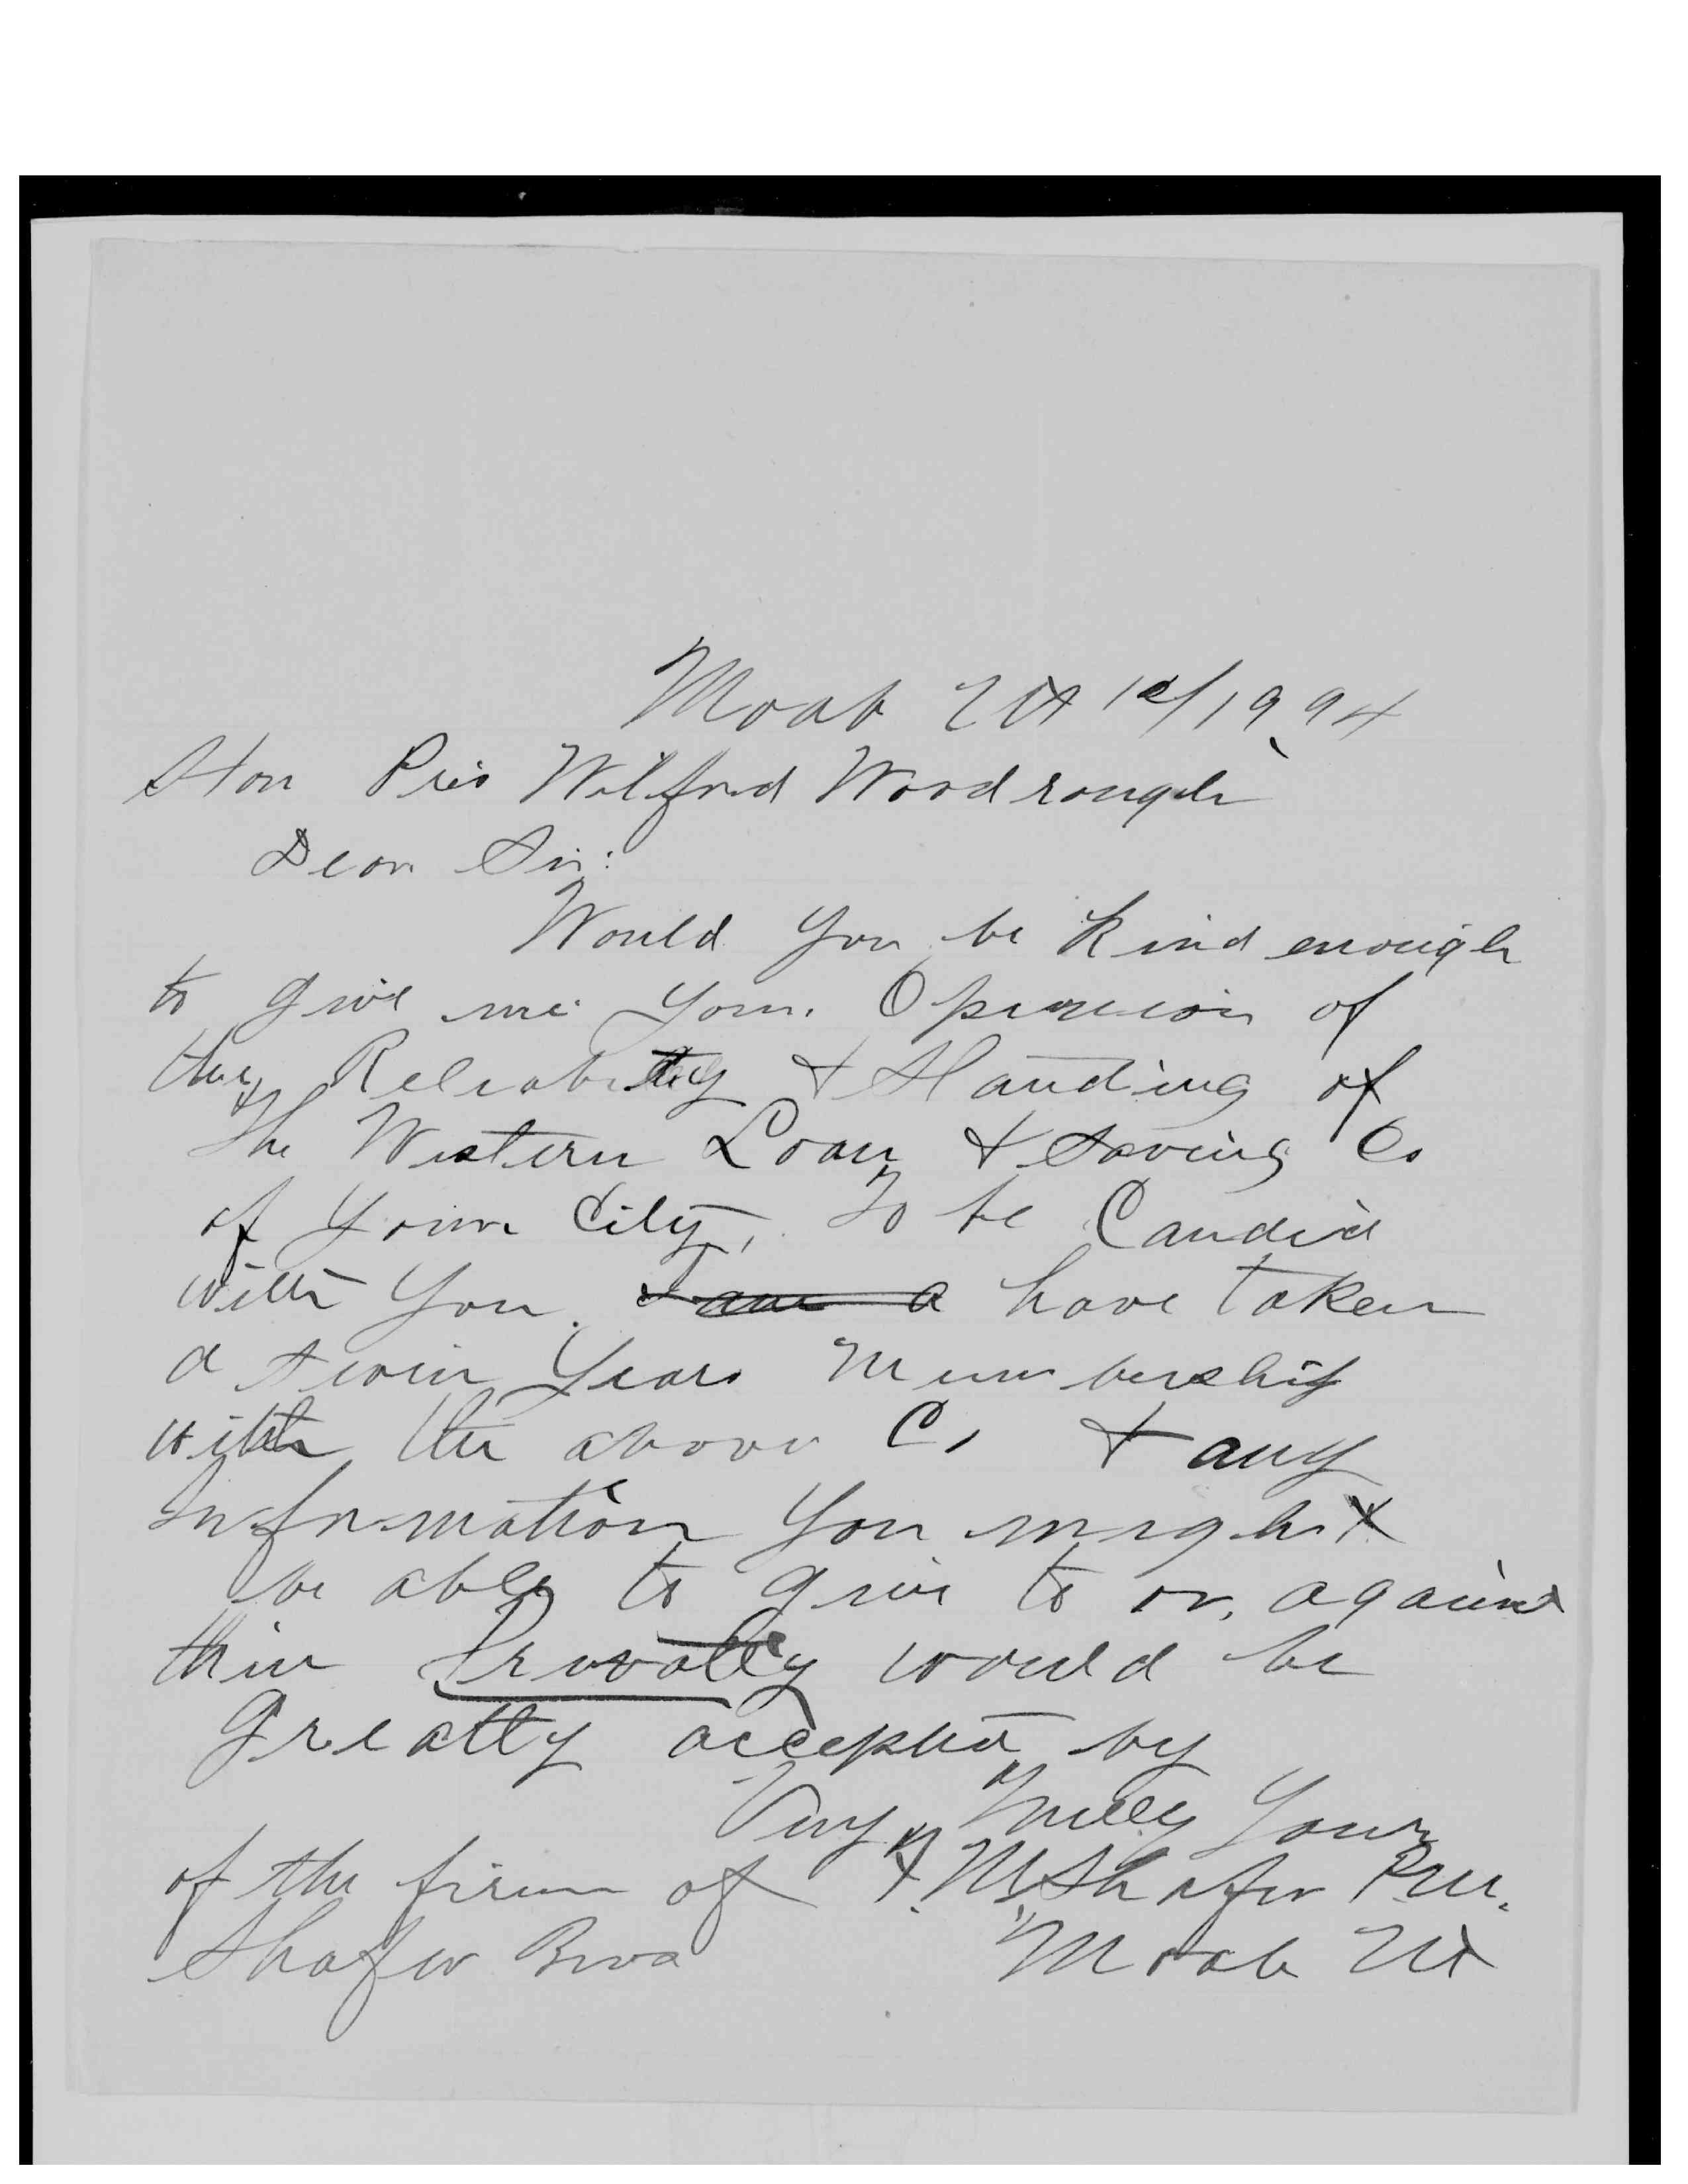 Moab Ut 12/19 94
Hon Pres Wilford Woodrough
Dear Sir:
Would You be Kind enough
to give me Your Opinnion of
the Reliabity & Standing of
the Western Loan & Saving Co
of Your City, To be Candid
with You. I am a have taken
a seven Years Membership
with the above Co & any
Information You might
be able to give to or against
this Privatly would be
greatly accepted by
Very Truly Yours
of the firm of Shafer
Shafer Bros Moab Ut